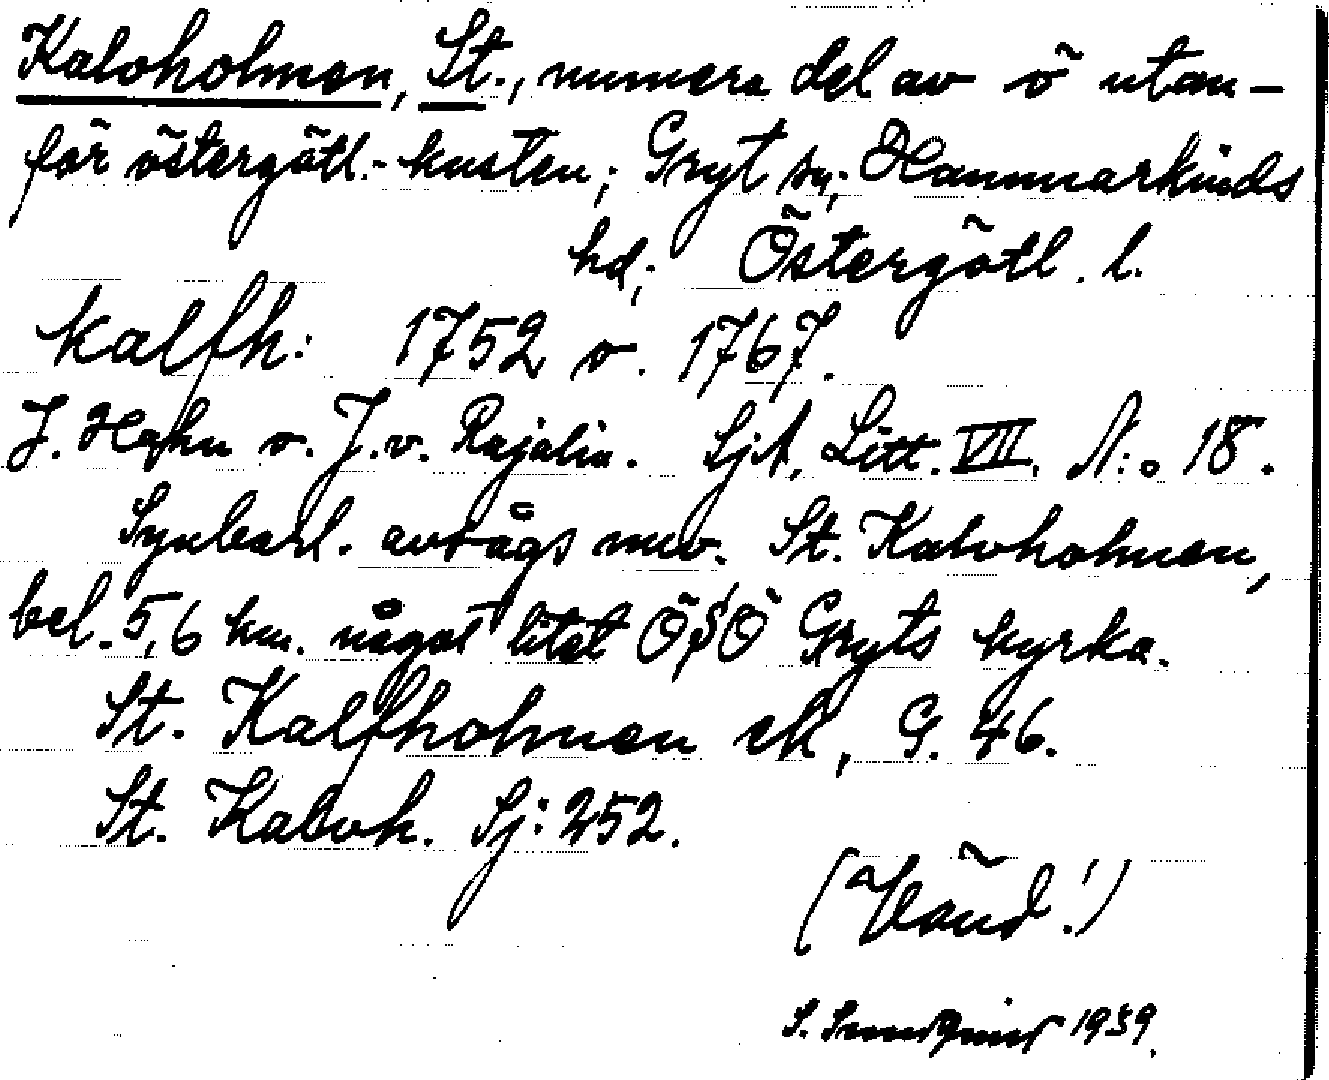 Kalvholmen, St., numera del av ö utan-
för östergötl.-kusten; Gryt sn; Hammarkinds
hd; Östergötl. l.
Kalfh: 1752 o. 1767.
J. Hahn o. J. v. Rajalin. SjA, Litt. VII. N:o 18.
Synbarl. avtågs nuv. St. Kalvholmen,
bel. 5,6 km. något litet ÖSÖ Gryts kyrka.
St. Kalfholmen ek, G. 46.
St. Kalvh. Sj: 252.
(Vänd!)
S. 1939.